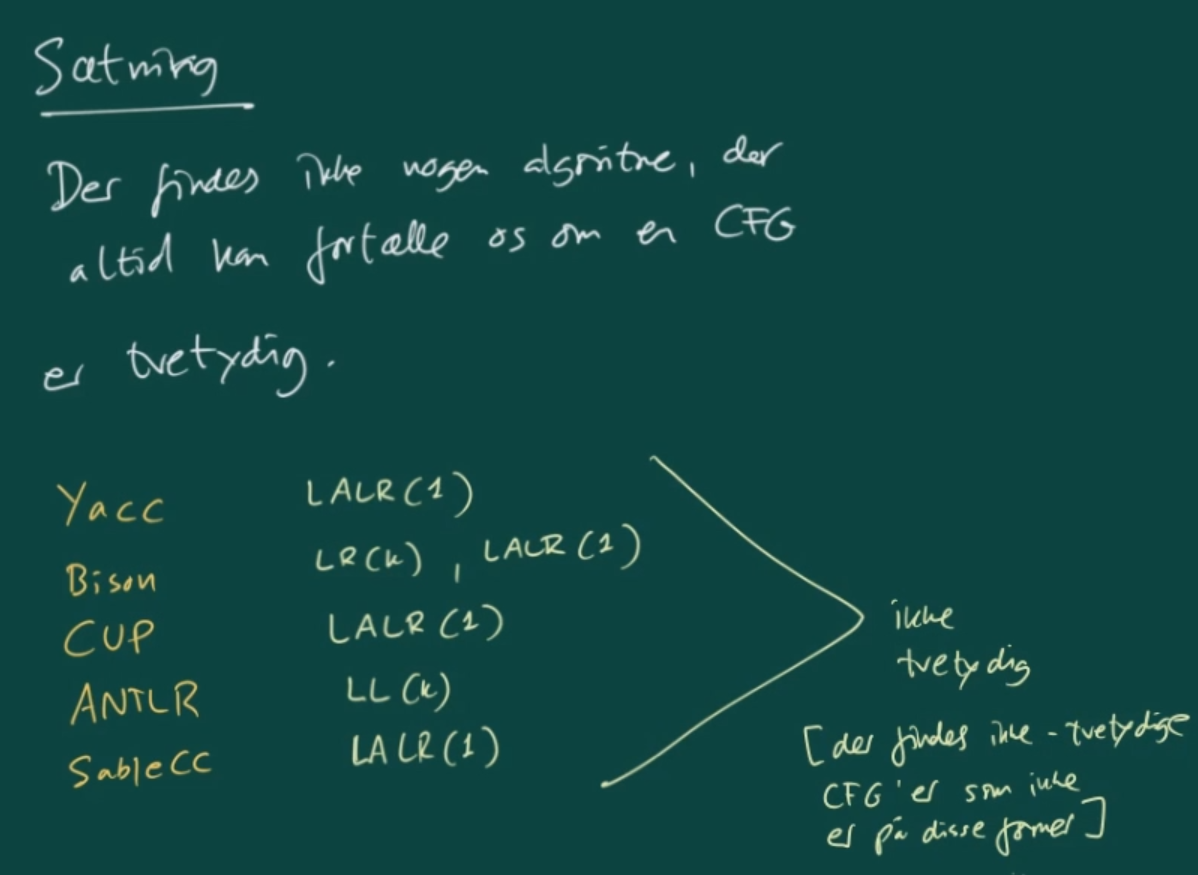 Sætning
Der findes ikke nogen algoritme, der
altid kan fortælle os om en CFG
er tvetydig.
Yacc LALR(1)
Bison LR(k), LALR(1)
CUP LALR(1)
ANTLR LL(k)
SableCC LALR(1)
ikke
tvetydig
[der findes ikke-tvetydige
CFG'er som ikke
er på disse former]